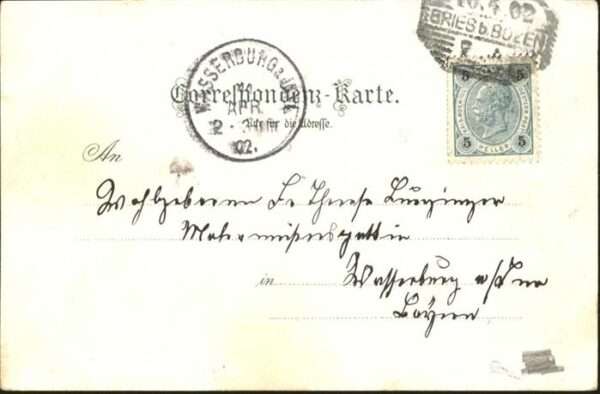 10.4.02
GRIES b. BOZEN
WASSERBURG a. INN
APR.
2-3
02.
5 5
5 HELLER 5
Correspondenz-Karte.
Nur für die Adresse.
An
Wohlgeboren Fr Therese
Malermeistersgattin
in Wasserburg a/Inn
Bayern